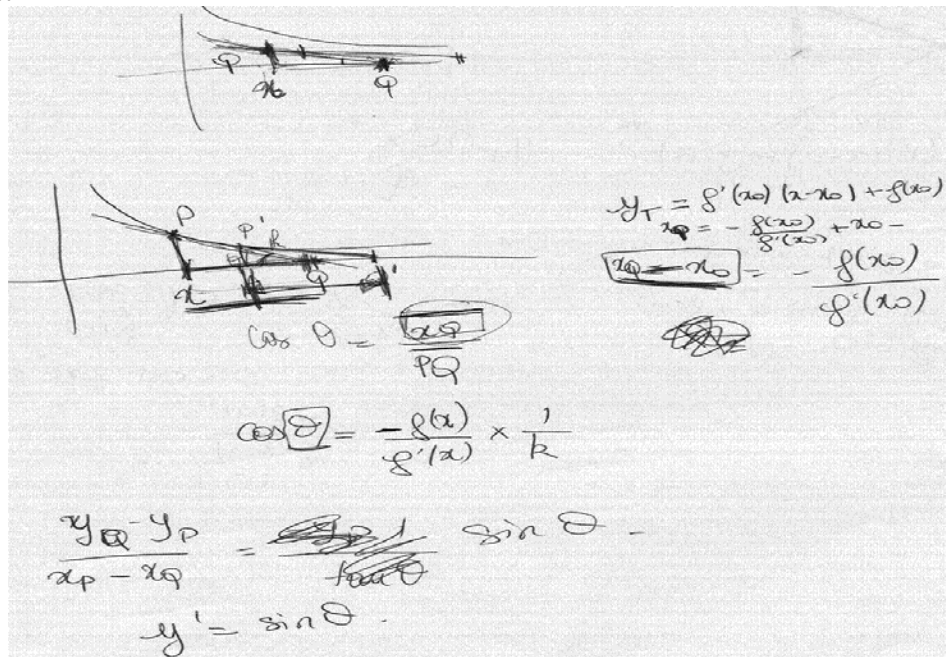 Q x₀ Q
P P' k
x Q Q'
y_T = f'(x₀) (x-x₀) + f(x₀)
x_Q = - f(x₀)/f'(x₀) + x₀ -
x_Q - x₀ = - f(x₀)/f'(x₀)
cos θ = xQ/PQ
cos θ = - f(x)/f'(x) × 1/k
y_Q - y_P / x_P - x_Q = sin θ -
y' = sin θ.